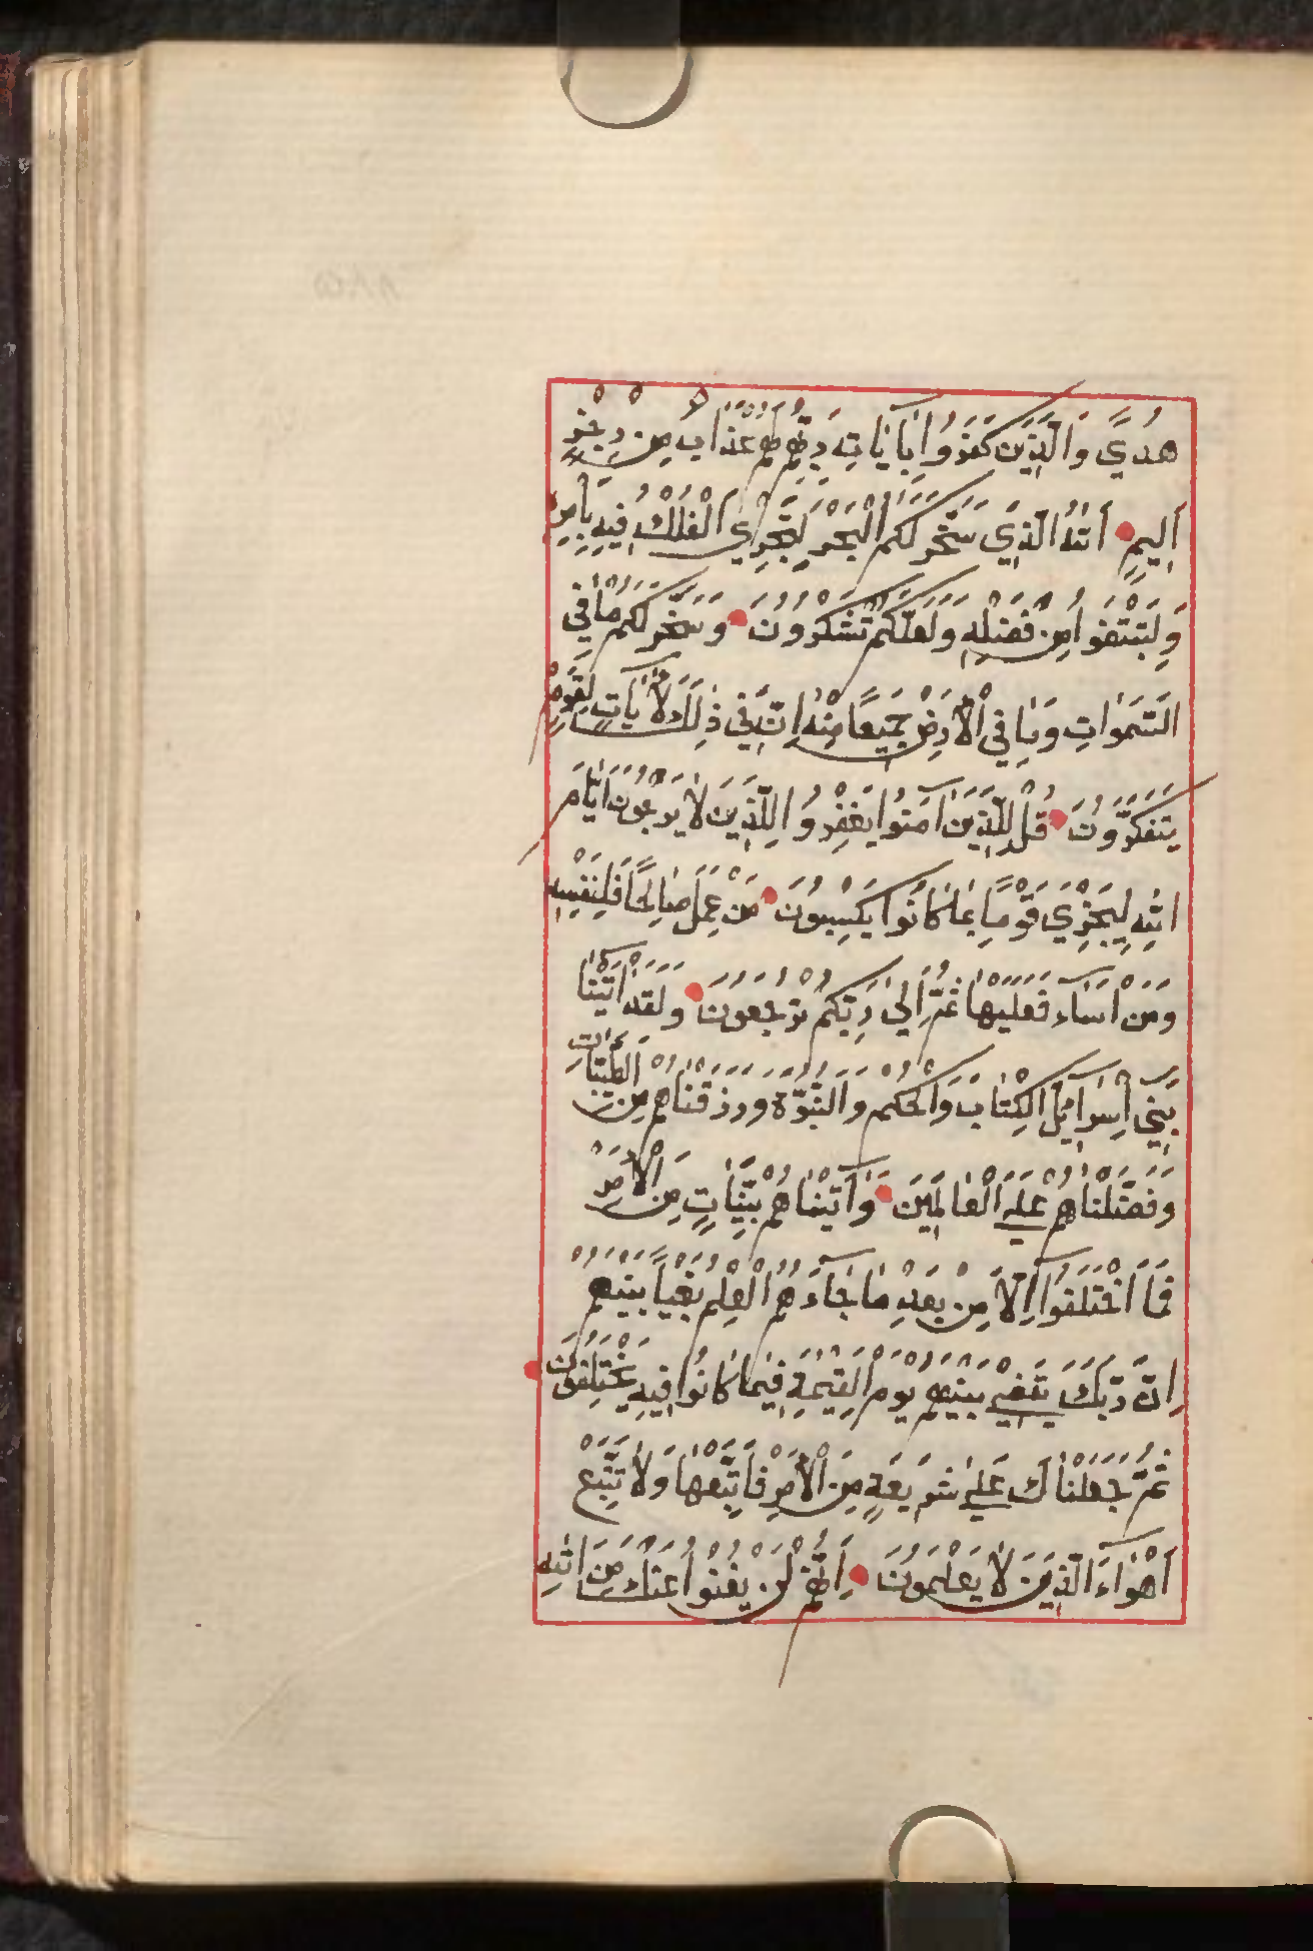 هُدًي وَالَّذِينَ كَفَرُوا بِاٰيَاتِ رَبِّهِمْ لَهُمْ عَذَابٌ مِنْ رِجْزٍ
اَلِيمٍ اَللّٰهُ الَّذِي سَخَّرَ لَكُمُ الْبَحْرَ لِتَجْرِيَ الْفُلْكُ فِيهِ بِاَمْرِهِ
وَلِتَبْتَغُوا مِنْ فَضْلِهِ وَلَعَلَّكُمْ تَشْكُرُونَ وَسَخَّرَ لَكُمْ مَا فِي
السَّمٰوَاتِ وَمَا فِي الْاَرْضِ جَمِيعًا مِنْهُ اِنَّ فِي ذٰلِكَ لَاٰيَاتٍ لِقَوْمٍ
يَتَفَكَّرُونَ قُلْ لِلَّذِينَ اٰمَنُوا يَغْفِرُوا لِلَّذِينَ لَا يَرْجُونَ اَيَّامَ
اللّٰهِ لِيَجْزِيَ قَوْمًا بِمَا كَانُوا يَكْسِبُونَ مَنْ عَمِلَ صَالِحًا فَلِنَفْسِهِ
وَمَنْ اَسَاءَ فَعَلَيْهَا ثُمَّ اِلَي رَبِّكُمْ تُرْجَعُونَ وَلَقَدْ اٰتَيْنَا
بَنِي اِسْرَآئِلَ الْكِتَابَ وَالْحُكْمَ وَالنُّبُوَّةَ وَرَزَقْنَاهُمْ مِنَ الطَّيِّبَاتِ
وَفَضَّلْنَاهُمْ عَلَي الْعَالَمِينَ وَاٰتَيْنَاهُمْ بَيِّنَاتٍ مِنَ الْاَمْرِ
فَمَا اخْتَلَفُوا اِلَّا مِنْ بَعْدِ مَا جَآءَهُمُ الْعِلْمُ بَغْيًا بَيْنَهُمْ
اِنَّ رَبَّكَ يَقْضِي بَيْنَهُمْ يَوْمَ الْقِيٰمَةِ فِيمَا كَانُوا فِيهِ يَخْتَلِفُونَ
ثُمَّ جَعَلْنَاكَ عَلَي شَرِيعَةٍ مِنَ الْاَمْرِ فَاتَّبِعْهَا وَلَا تَتَّبِعْ
اَهْوَاءَ الَّذِينَ لَا يَعْلَمُونَ اِنَّهُمْ لَنْ يُغْنُوا عَنْكَ مِنَ اللّٰهِ